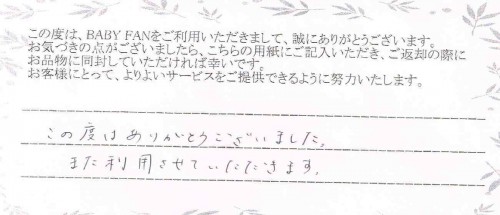 この度は、BABY FANをご利用いただきまして、誠にありがとうございます。
お気づきの点がございましたら、こちらの用紙にご記入いただき、ご返却の際に
お品物に同封していただければ幸いです。
お客様にとって、よりよいサービスをご提供できるように努力いたします。
この度はありがとうございました。
また利用させていただきます。